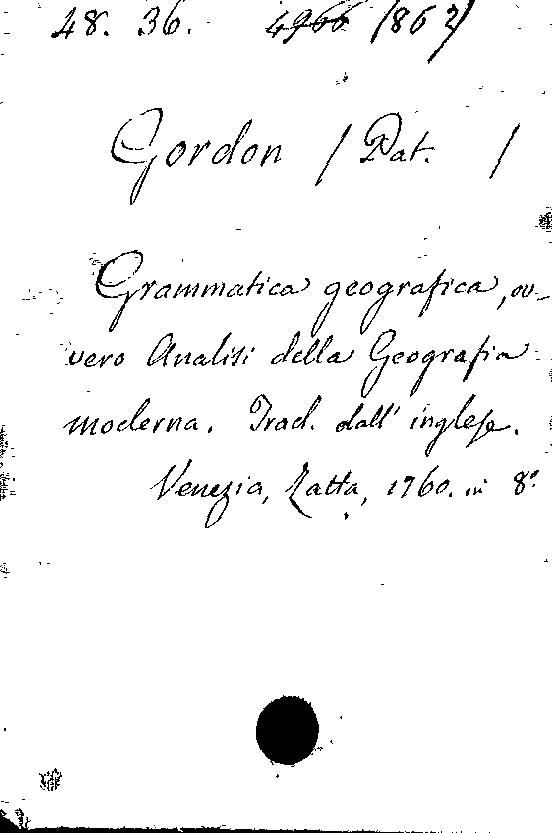 48. 36. 4966 /862/
Gordon / Pat. /
Grammatica geografica, ov-
vero Analisi della Geografia
moderna. Trad. dall' inglese.
Venezia, Zatta, 1760. in 8°.